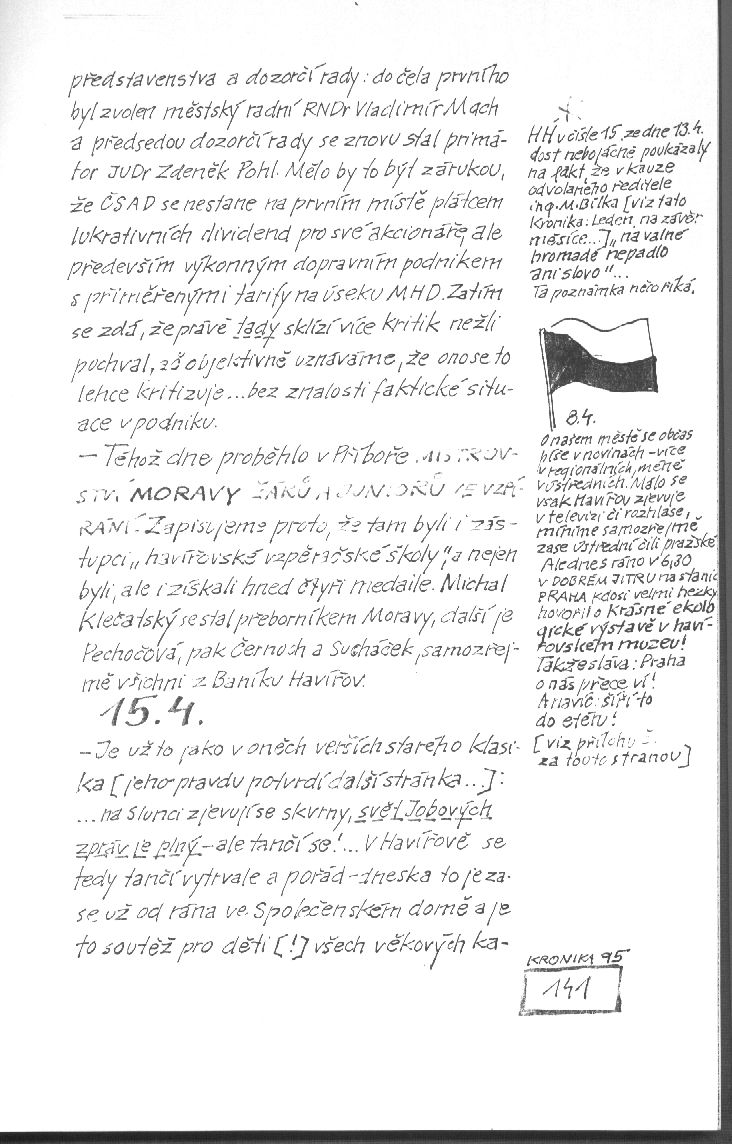 představenstva a dozorčí rady: do čela prvního
byl zvolen městský radní RNDr Vladimír Mach
a předsedou dozorčí rady se znovu stal primá-
tor JUDr Zdeněk Pohl. Mělo by to být zárukou,
že ČSAD se nestane na prvním místě plátcem
lukrativních dividend pro své akcionáře, ale
především výkonným dopravním podnikem
s přiměřenými tarify na úseku MHD. Zatím
se zdá, že právě tady sklízí více kritik nežli
pochval, ač objektivně uznáváme, že ono se to
lehce kritizuje... bez znalosti faktické situ-
ace v podniku.
– Téhož dne proběhlo v Příboře MISTROV-
STVÍ MORAVY ŽÁKŮ A JUNIORŮ VE VZPÍ-
RÁNÍ. Zapisujeme proto, že tam byli i zás-
tupci „havířovské vzpěračské školy", a nejen
byli, ale i získali hned čtyři medaile. Michal
Klečatský se stal přeborníkem Moravy, další je
Pechočová, pak Černoch a Sucháček, samozřej-
mě všichni z Baníku Havířov.
15.4.
– Je už to jako v oněch verších starého klasi-
ka [jeho pravdu potvrdí další stránka...]:
...na Slunci zjevují se skvrny, svět Jobových
zpráv je plný – ale tančí se!... V Havířově se
tedy tančí vytrvale a pořád – dneska to je za-
se už od rána ve Společenském domě a je
to soutěž pro děti [!] všech věkových ka-
HH v čísle 15 ze dne 13.4.
dost nebojácně poukázaly
na fakt, že v kauze
odvolaného ředitele
ing. M. Bílka [viz tato
kronika: Leden, na závěr
měsíce...] „na valné
hromadě nepadlo
ani slovo"...
Ta poznámka něco říká.
8.4.
O našem městě se občas
píše v novinách – více
v regionálních, méně
v ústředních. Málo se
však Havířov zjevuje
v televizi či rozhlase,
míníme samozřejmě
zase ústřední čili pražské
Ale dnes ráno v 6,30
v DOBRÉM JITRU na stanici
PRAHA kdosi velmi hezky
hovořil o krásné ekolo
gické výstavě v haví-
řovském muzeu!
Takže sláva: Praha
o nás přece ví!
A navíc: šíří to
do éteru!
[viz přílohu č.
za touto stranou]
KRONIKA 95
141